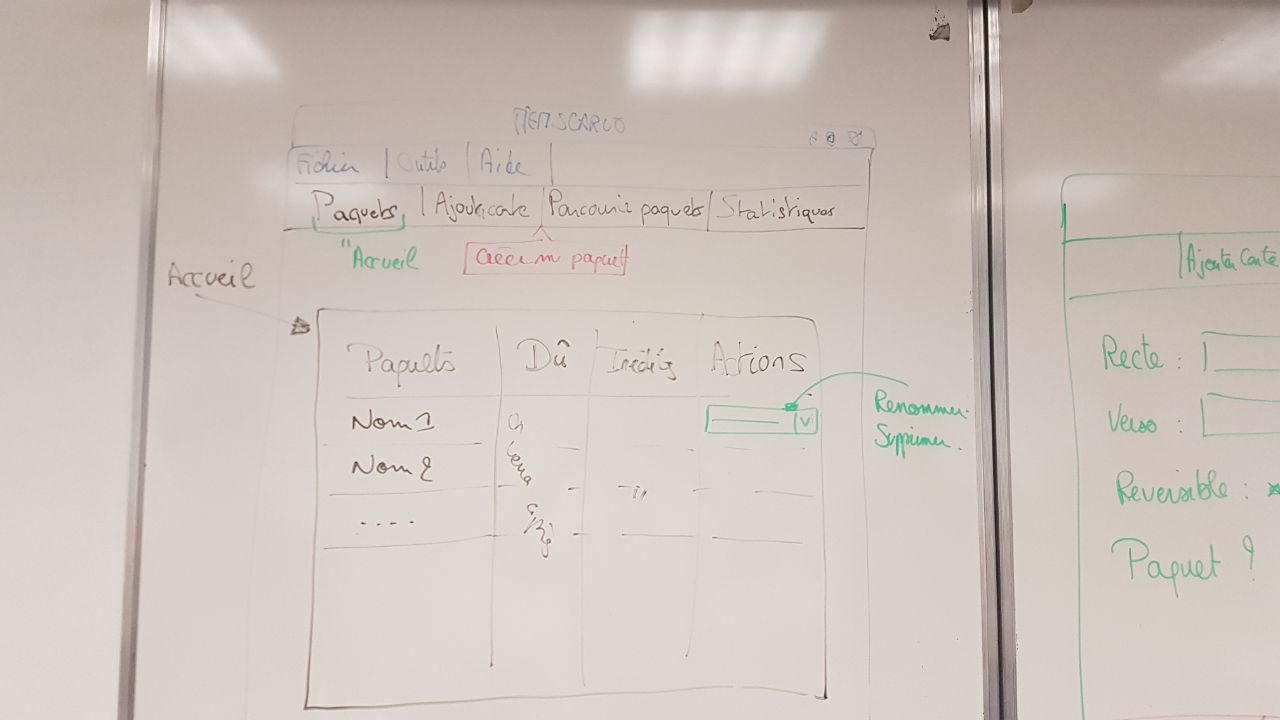 Fichier | Outils | Aide |
Paquets | Ajouter carte | Parcourir paquets | Statistiques
"Accueil
Créer un paquet
Accueil
Paquets Dû Actions
Nom 1
Nom 2
....
Renommer.
Supprimer.
Ajouter Carte
Recte :
Verso :
Reversible :
Paquet ?